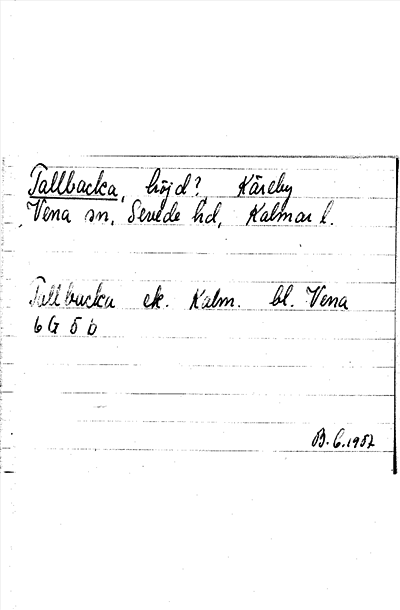 Tallbacka, höjd? Käreby
Vena sn, Sevede hd, Kalmar l.
Tallbacka ek. Kalm. bl. Vena
6 G 5 b
B. G. 1957